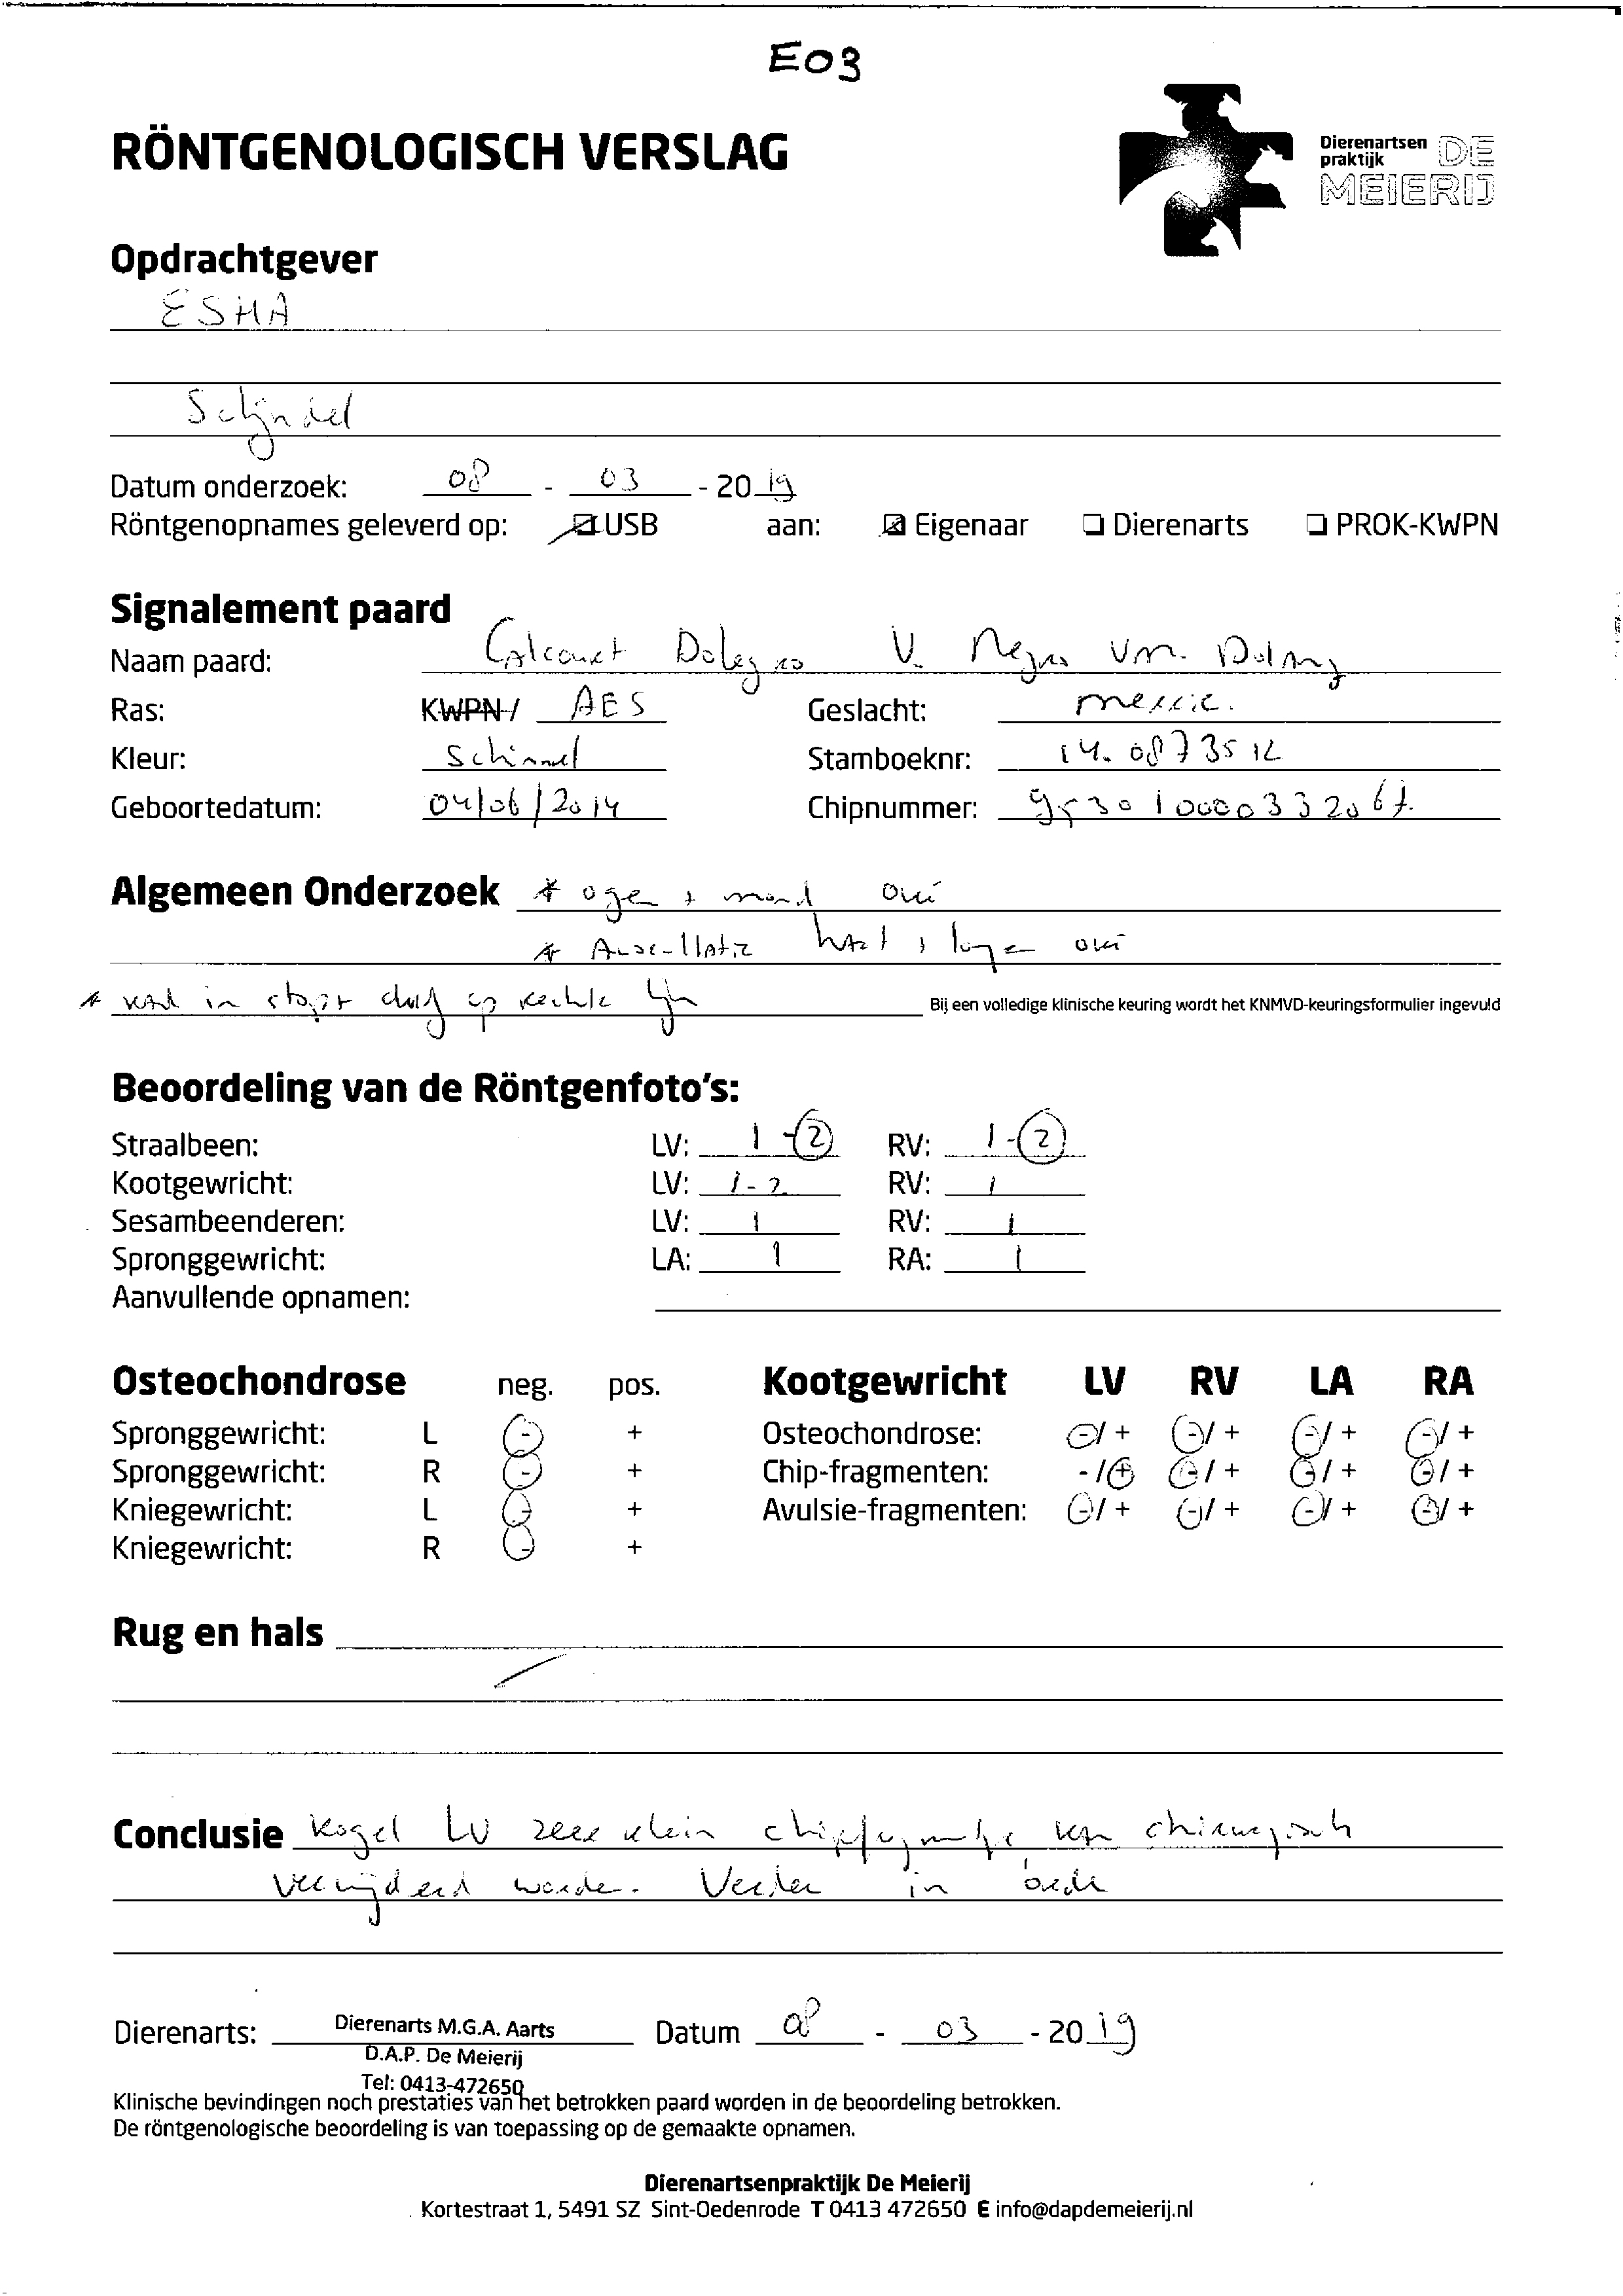 E03
RÖNTGENOLOGISCH VERSLAG
Dierenartsen
praktijk DE
MEIERIJ
Opdrachtgever
ESHA
Schijndel
Datum onderzoek: 08 - 03 - 2019
Röntgenopnames geleverd op: ☑ USB aan: ☑ Eigenaar ❑ Dierenarts ❑ PROK-KWPN
Signalement paard
Naam paard: V. Negro vm.
Ras: KWPN / AES Geslacht: merrie.
Kleur: Schimmel Stamboeknr: 14.0873512
Geboortedatum: 04/06/2014 Chipnummer:
Algemeen Onderzoek * ogen + mond ovi
* Auscultatie hart + longen ovi
* in stap + draf op rechte lijn
Bij een volledige klinische keuring wordt het KNMVD-keuringsformulier ingevuld
Beoordeling van de Röntgenfoto's:
Straalbeen: LV: 1-2 RV: 1-2
Kootgewricht: LV: 1-2 RV: 1
Sesambeenderen: LV: 1 RV: 1
Spronggewricht: LA: 1 RA: 1
Aanvullende opnamen:
Osteochondrose neg. pos. Kootgewricht LV RV LA RA
Spronggewricht: L - + Osteochondrose: -/+ -/+ -/+ -/+
Spronggewricht: R - + Chip-fragmenten: -/+ -/+ -/+ -/+
Kniegewricht: L - + Avulsie-fragmenten: -/+ -/+ -/+ -/+
Kniegewricht: R - +
Rug en hals
Conclusie Kogel LV zeer klein chipfragmentje kan chirurgisch
verwijderd worden. Verder in orde
Dierenarts: Dierenarts M.G.A. Aarts Datum 08 - 03 - 2019
D.A.P. De Meierij
Tel: 0413-472650
Klinische bevindingen noch prestaties van het betrokken paard worden in de beoordeling betrokken.
De röntgenologische beoordeling is van toepassing op de gemaakte opnamen.
Dierenartsenpraktijk De Meierij
Kortestraat 1, 5491 SZ Sint-Oedenrode T 0413 472650 E info@dapdemeierij.nl